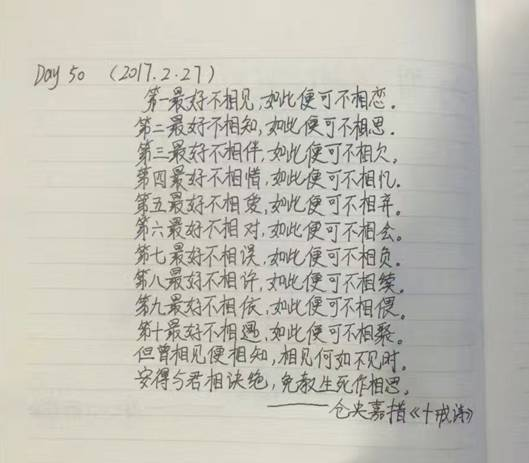 Day 50 (2017.2.27)
第一最好不相见,如此便可不相恋.
第二最好不相知,如此便可不相思.
第三最好不相伴,如此便可不相欠。
第四最好不相惜,如此便可不相忆.
第五最好不相爱,如此便可不相弃.
第六最好不相对,如此便可不相会.
第七最好不相误,如此便可不相负.
第八最好不相许,如此便可不相续.
第九最好不相依,如此便可不相偎.
第十最好不相遇,如此便可不相聚.
但曾相见便相知,相见何如不见时.
安得与君相诀绝,免教生死作相思.
——仓央嘉措《十戒诗》